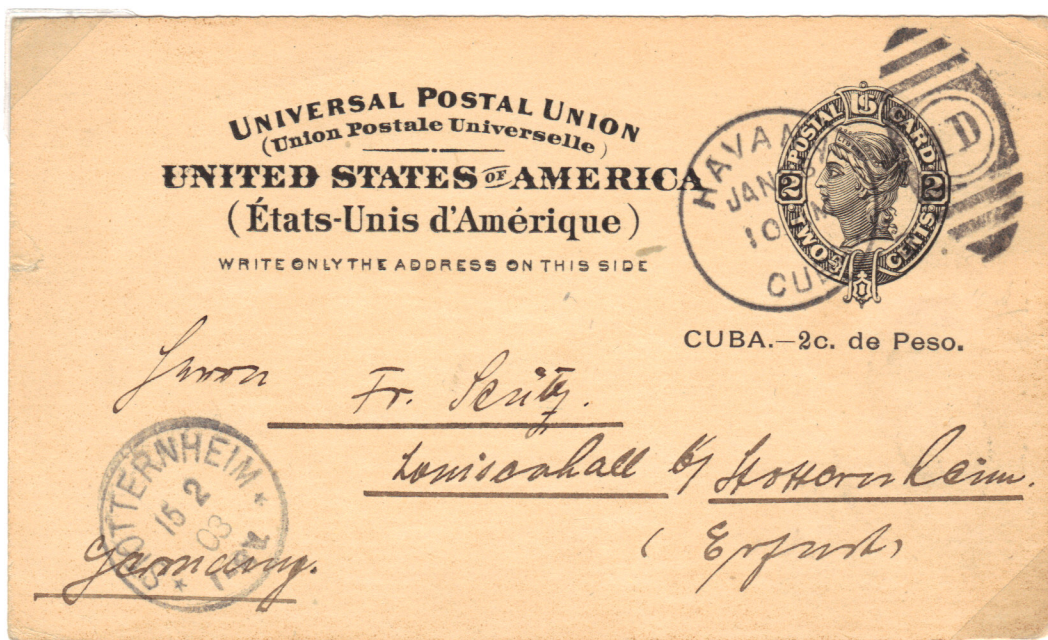 UNIVERSAL POSTAL UNION
(Union Postale Universelle)
UNITED STATES OF AMERICA
(États-Unis d'Amérique)
WRITE ONLY THE ADDRESS ON THIS SIDE
POSTAL CARD
2 2
TWO CENTS
HAVAN
JAN
10
CU
D
CUBA.—2c. de Peso.
Herrn
Fr. Schütz.
Louisenhall b/ Stotternheim.
(Erfurt)
Germany.
STOTTERNHEIM
15 2
03